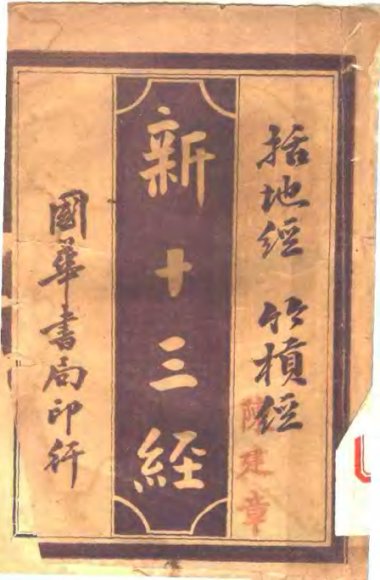 括地經 竹楨經
新十三經
國華書局印行
陳建章